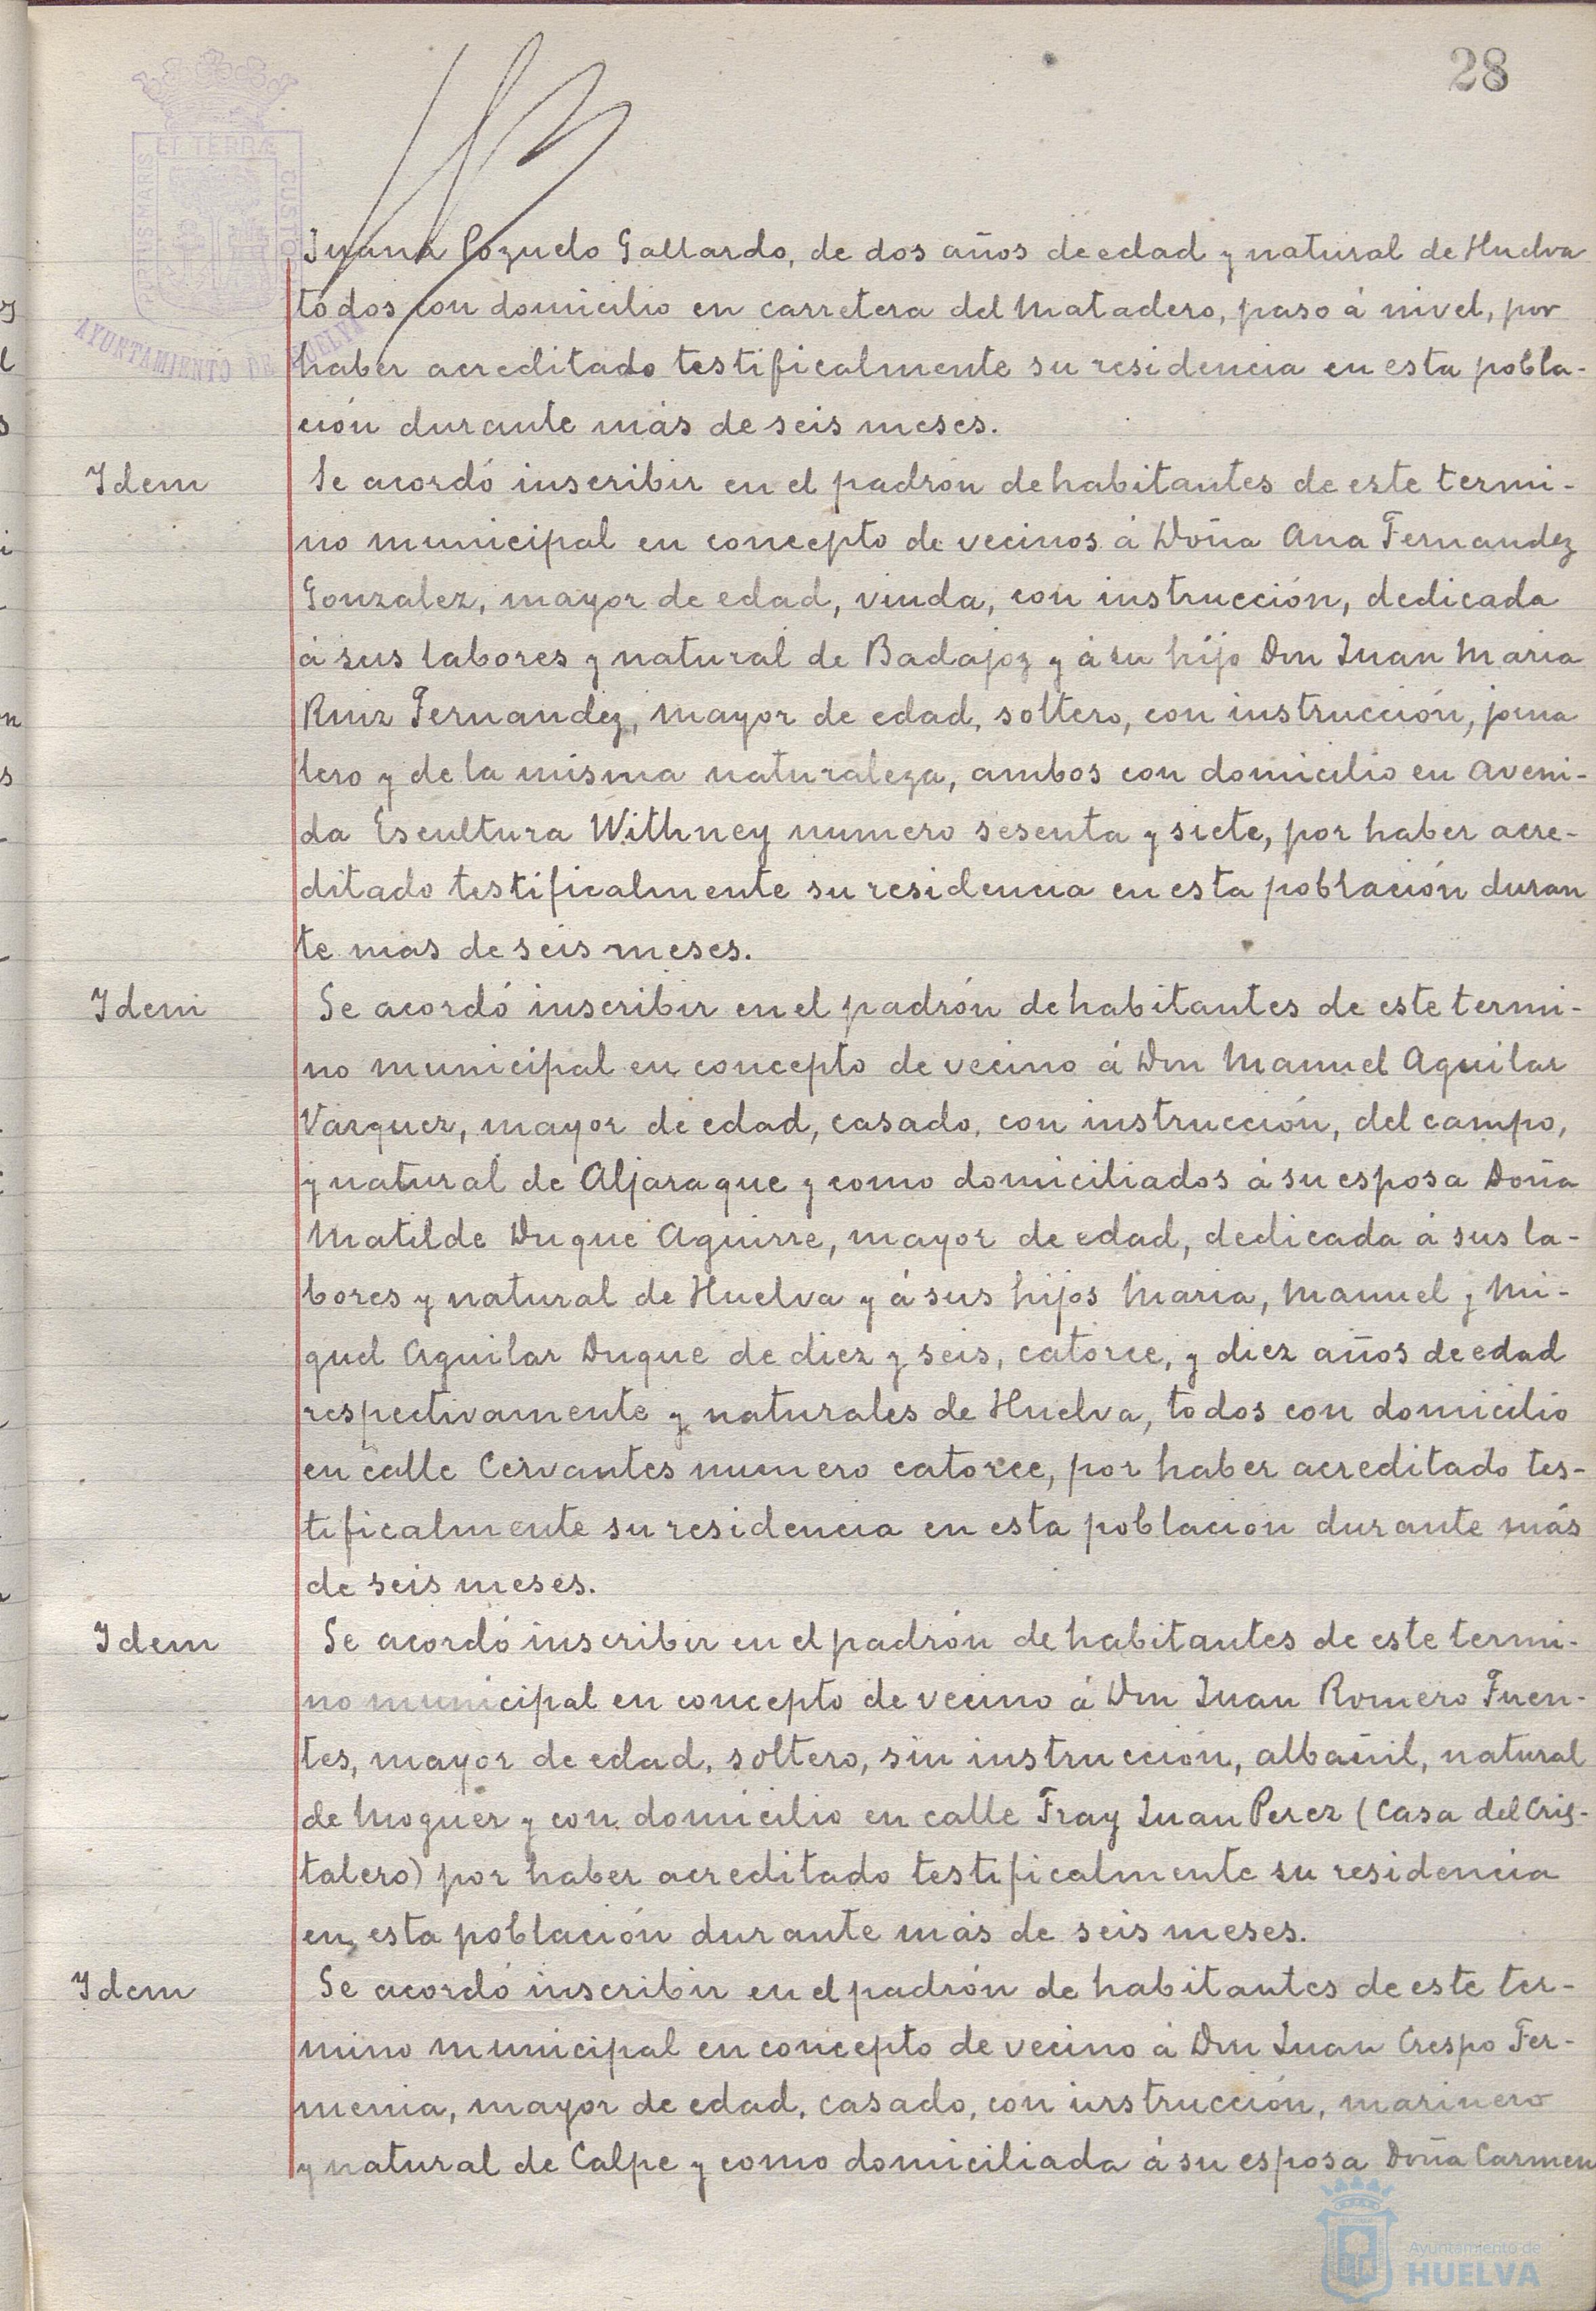 28
ET TERRÆ
PORTUS MARIS
CUSTO
AYUNTAMIENTO DE HUELVA
Juana Pozuelo Gallardo, de dos años de edad y natural de Huelva
todos con domicilio en carretera del Matadero, paso á nivel, por
haber acreditado testificalmente su residencia en esta pobla-
ción durante más de seis meses.
Idem
Se acordó inscribir en el padrón de habitantes de este termi-
no municipal en concepto de vecinos á Doña Ana Fernandez
Gonzalez, mayor de edad, viuda, con instrucción, dedicada
á sus labores y natural de Badajoz y á su hijo Don Juan Maria
Ruiz Fernandez, mayor de edad, soltero, con instrucción, jorna
lero y de la misma naturaleza, ambos con domicilio en Aveni-
da Escultura Withney numero sesenta y siete, por haber acre-
ditado testificalmente su residencia en esta población duran
te mas de seis meses.
Idem
Se acordó inscribir en el padrón de habitantes de este termi-
no municipal en concepto de vecino á Don Manuel Aguilar
Vazquez, mayor de edad, casado, con instrucción, del campo,
y natural de Aljaraque y como domiciliados á su esposa Doña
Matilde Duque Aguirre, mayor de edad, dedicada á sus la-
bores y natural de Huelva y á sus hijos Maria, Manuel y Mi-
guel Aguilar Duque de diez y seis, catorce, y diez años de edad
respectivamente y naturales de Huelva, todos con domicilio
en calle Cervantes numero catorce, por haber acreditado tes-
tificalmente su residencia en esta poblacion durante más
de seis meses.
Idem
Se acordó inscribir en el padrón de habitantes de este termi-
no municipal en concepto de vecino á Don Juan Romero Fuen-
tes, mayor de edad, soltero, sin instrucción, albañil, natural
de Moguer y con domicilio en calle Fray Juan Perez (Casa del Cris-
talero) por haber acreditado testificalmente su residencia
en esta población durante más de seis meses.
Idem
Se acordó inscribir en el padrón de habitantes de este ter-
mino municipal en concepto de vecino á Don Juan Crespo Fer-
menia, mayor de edad, casado, con instrucción, marinero
y natural de Calpe y como domiciliada á su esposa Doña Carmen
Ayuntamiento de
HUELVA